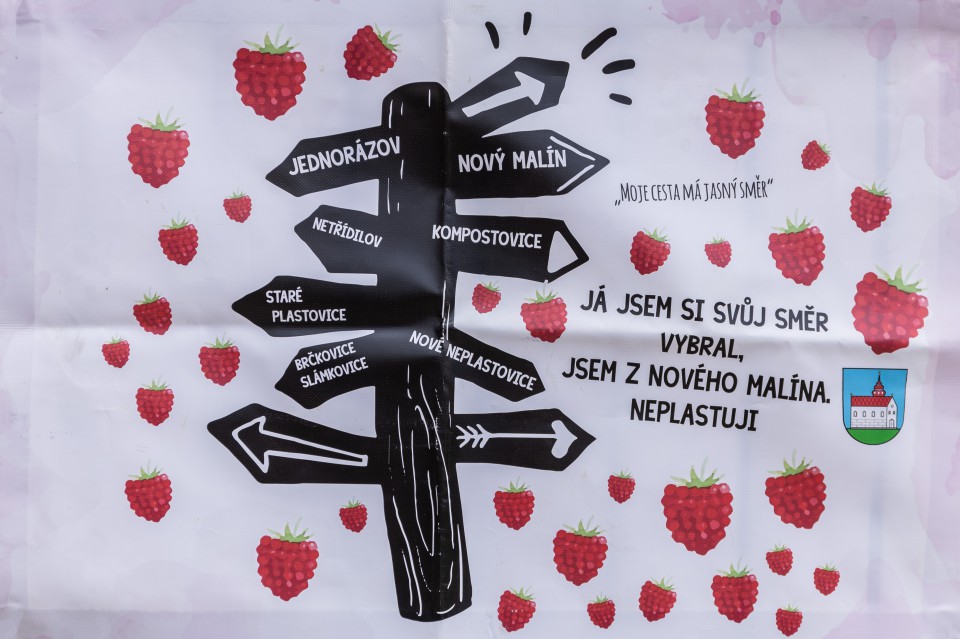 JEDNORÁZOV
NOVÝ MALÍN
NETŘÍDILOV
KOMPOSTOVICE
STARÉ
PLASTOVICE
BRČKOVICE
SLÁMKOVICE
NOVÉ NEPLASTOVICE
„MOJE CESTA MÁ JASNÝ SMĚR“
JÁ JSEM SI SVŮJ SMĚR
VYBRAL,
JSEM Z NOVÉHO MALÍNA.
NEPLASTUJI